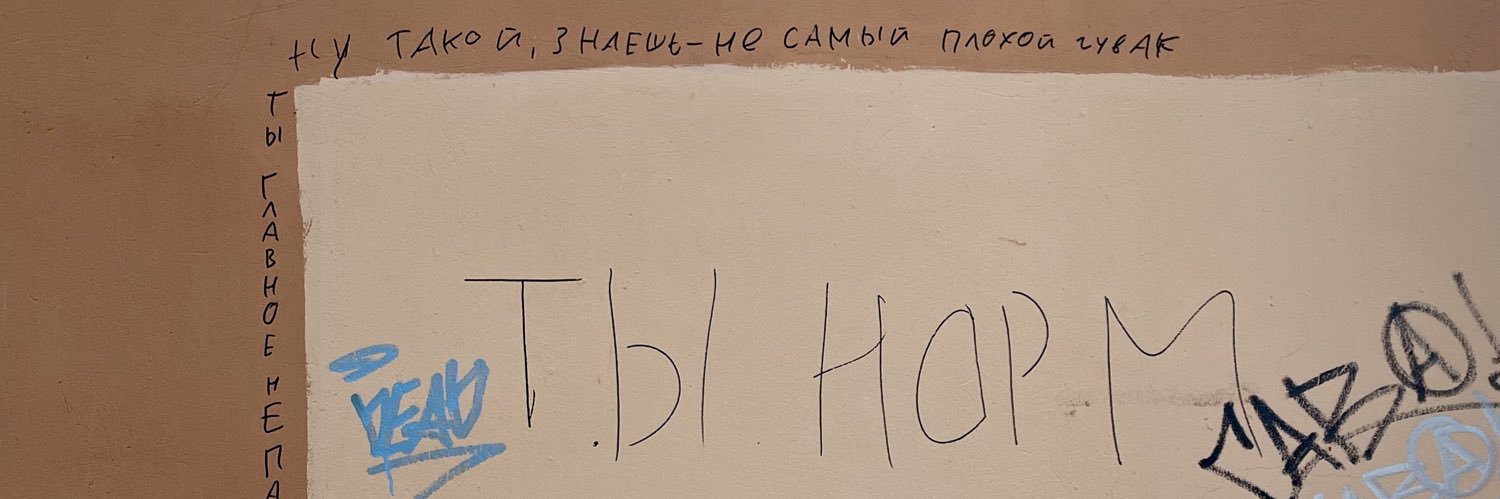 ну такой, знаешь-не самый плохой чувак
ты главное не па
ТЫ НОРМ
DEAD
САВА!